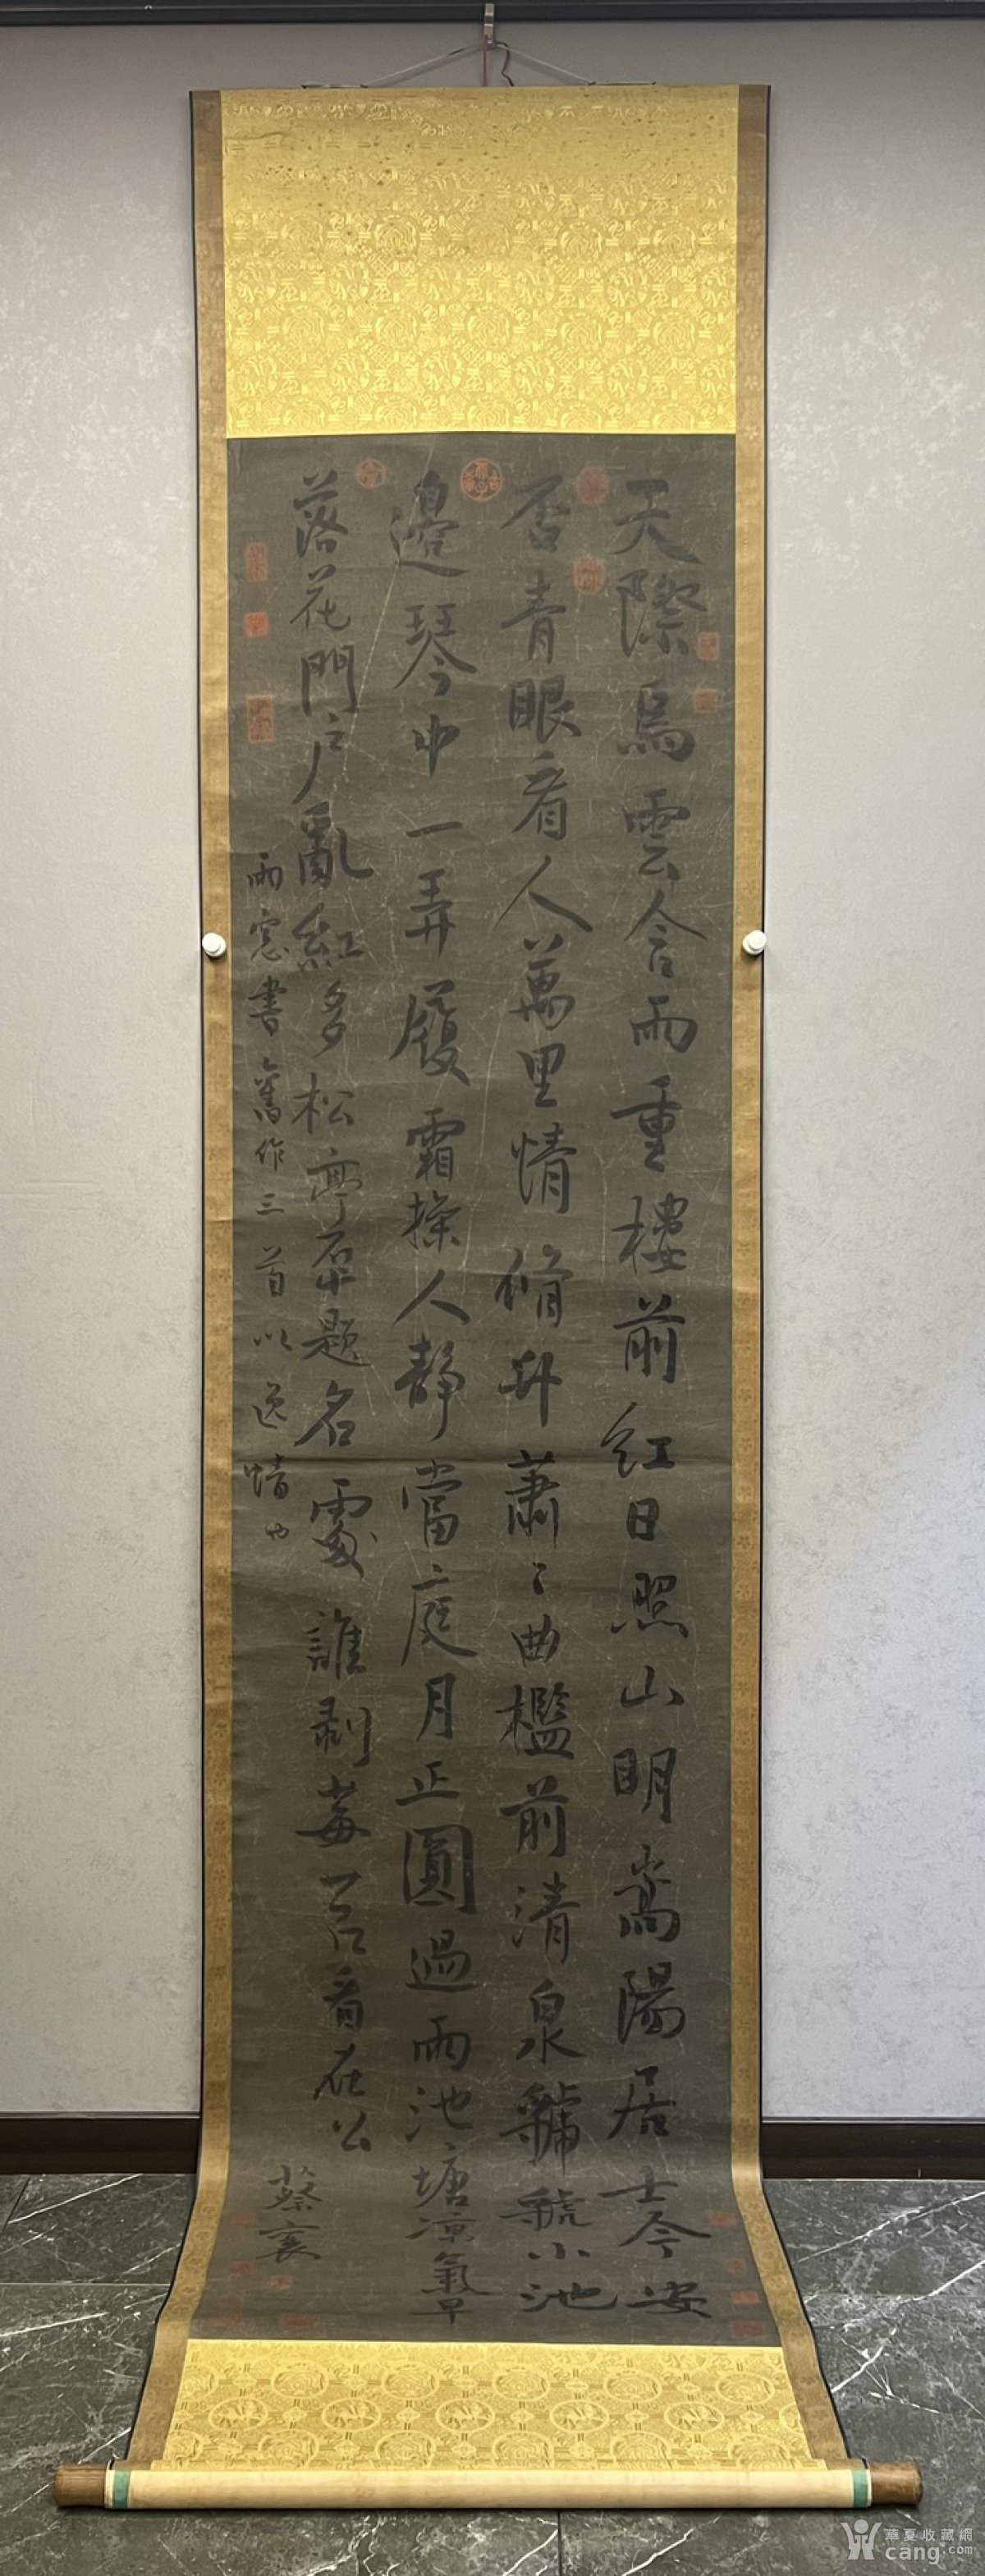 天際烏雲含雨重樓前紅日照山明嵩陽居士今安
否青眼看人萬里情脩竹蕭〻曲檻前清泉虢虢小池
邊琴中一弄履霜操人靜當庭月正圓過雨池塘凉氣早
落花門戶亂紅多松亭原題名處誰剥莓苔看在公
雨窓書舊作三首以逸情也
蔡襄
華夏收藏網
cang.com